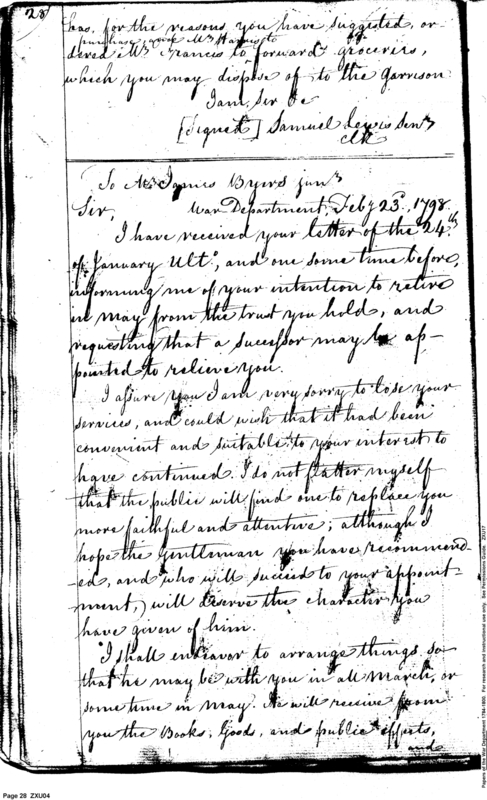 28
has, for the reasons you have suggested, or-
purchase, & Mr. Harris to
dered Mr. Francis to forward groceries,
which you may dispose of to the garrison
I am, Sir &c
[Signed] Samuel Lewis Senr.
Clk
To Mr. James Byers junr.
Sir,
War Department, Feby 23d. 1798.
I have received your letter of the 24th.
of January Ulto., and one some time before,
informing me of your intention to retire
in May from the trust you hold, and
requesting that a successor may be ap-
pointed to relieve you.
I assure you I am very sorry to lose your
services, and could wish that it had been
convenient and suitable to your interest to
have continued. I do not flatter myself
that the public will find one to replace you
more faithful and attentive; although I
hope the gentleman you have recommend-
-ed, and who will succeed to your appoint-
ment, will deserve the character you
have given of him.
I shall endeavor to arrange things so
that he may be with you in all March, or
some time in May. He will receive from
you the Books, Goods, and public effects,
and
Page 28 ZXU04
Papers of the War Department 1784-1800. For research and instructional use only. See Permissions Guide. ZXU17